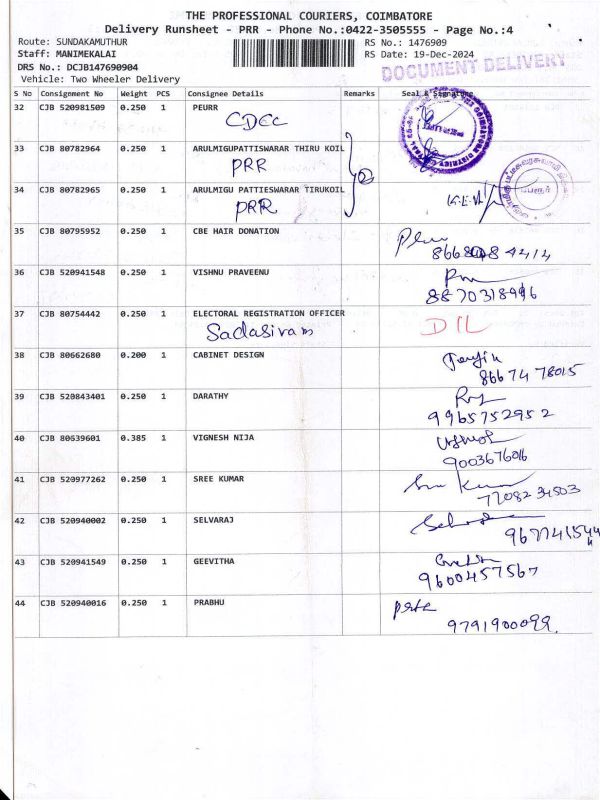 THE PROFESSIONAL COURIERS, COIMBATORE
Delivery Runsheet - PRR - Phone No.:0422-3505555 - Page No.:4
Route: SUNDAKAMUTHUR RS No.: 1476909
Staff: MANIMEKALAI RS Date: 19-Dec-2024
DRS No.: DCJB147690904
DOCUMENT DELIVERY
Vehicle: Two Wheeler Delivery
S No Consignment No Weight PCS Consignee Details Remarks Seal & Signature
32 CJB 520981509 0.250 1 PEURR
CDCC
33 CJB 80782964 0.250 1 ARULMIGUPATTISWARAR THIRU KOIL
PRR
34 CJB 80782965 0.250 1 ARULMIGU PATTIESWARAR TIRUKOIL
PRR
35 CJB 80795952 0.250 1 CBE HAIR DONATION
36 CJB 520941548 0.250 1 VISHNU PRAVEENU
8870318996
37 CJB 80754442 0.250 1 ELECTORAL REGISTRATION OFFICER
Sadasivam D I L
38 CJB 80662680 0.200 1 CABINET DESIGN
86674 78015
39 CJB 520843401 0.250 1 DARATHY
9965752952
40 CJB 80639601 0.385 1 VIGNESH NIJA
9003676016
41 CJB 520977262 0.250 1 SREE KUMAR
77082 34503
42 CJB 520940002 0.250 1 SELVARAJ
43 CJB 520941549 0.250 1 GEEVITHA
9600457567
44 CJB 520940016 0.250 1 PRABHU
9791900099